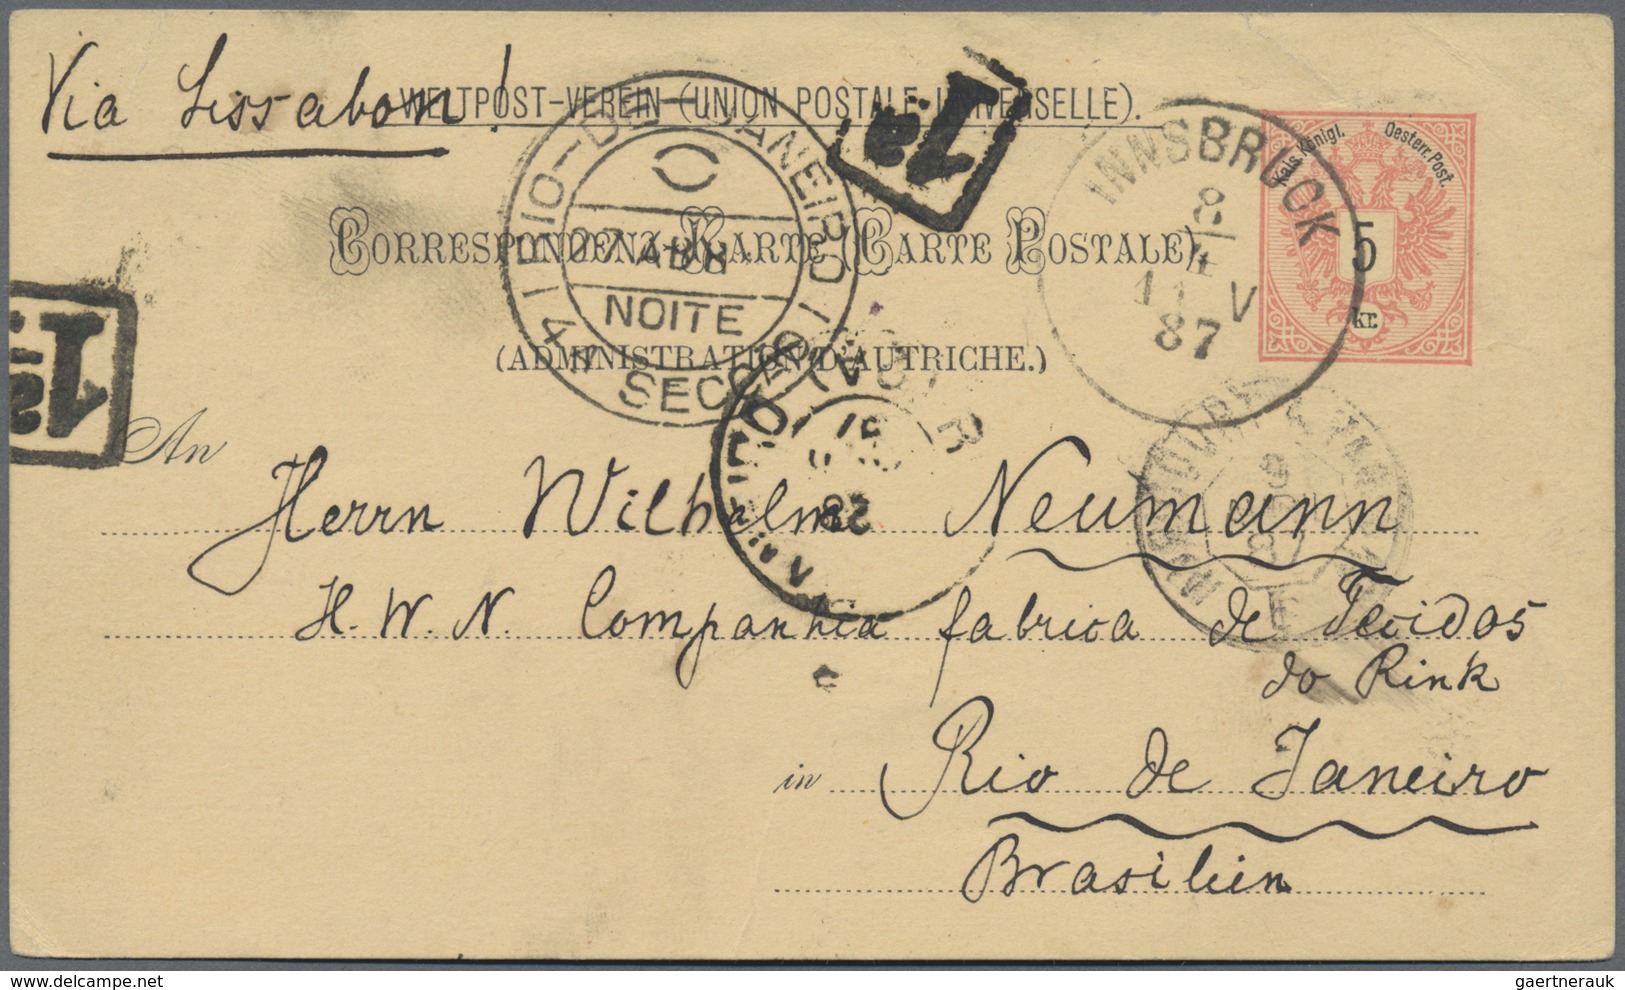 Via Lissabon!
WELTPOST-VEREIN (UNION POSTALE UNIVERSELLE).
CORRESPONDENZ-KARTE (CARTE POSTALE)
(ADMINISTRATION D'AUTRICHE.)
Kais. Königl. Oesterr. Post.
5
kr.
INNSBRUCK
8
IV
87
RIO-DE-JANEIRO
NOITE
4ª SECÇÃO
1ª
1ª
An Herrn Wilhelm Neumann
H. W. N. Companhia fabrica de Tecidos
do Rink
in Rio de Janeiro
Brasilien
gaertnerauk
delcampe.net